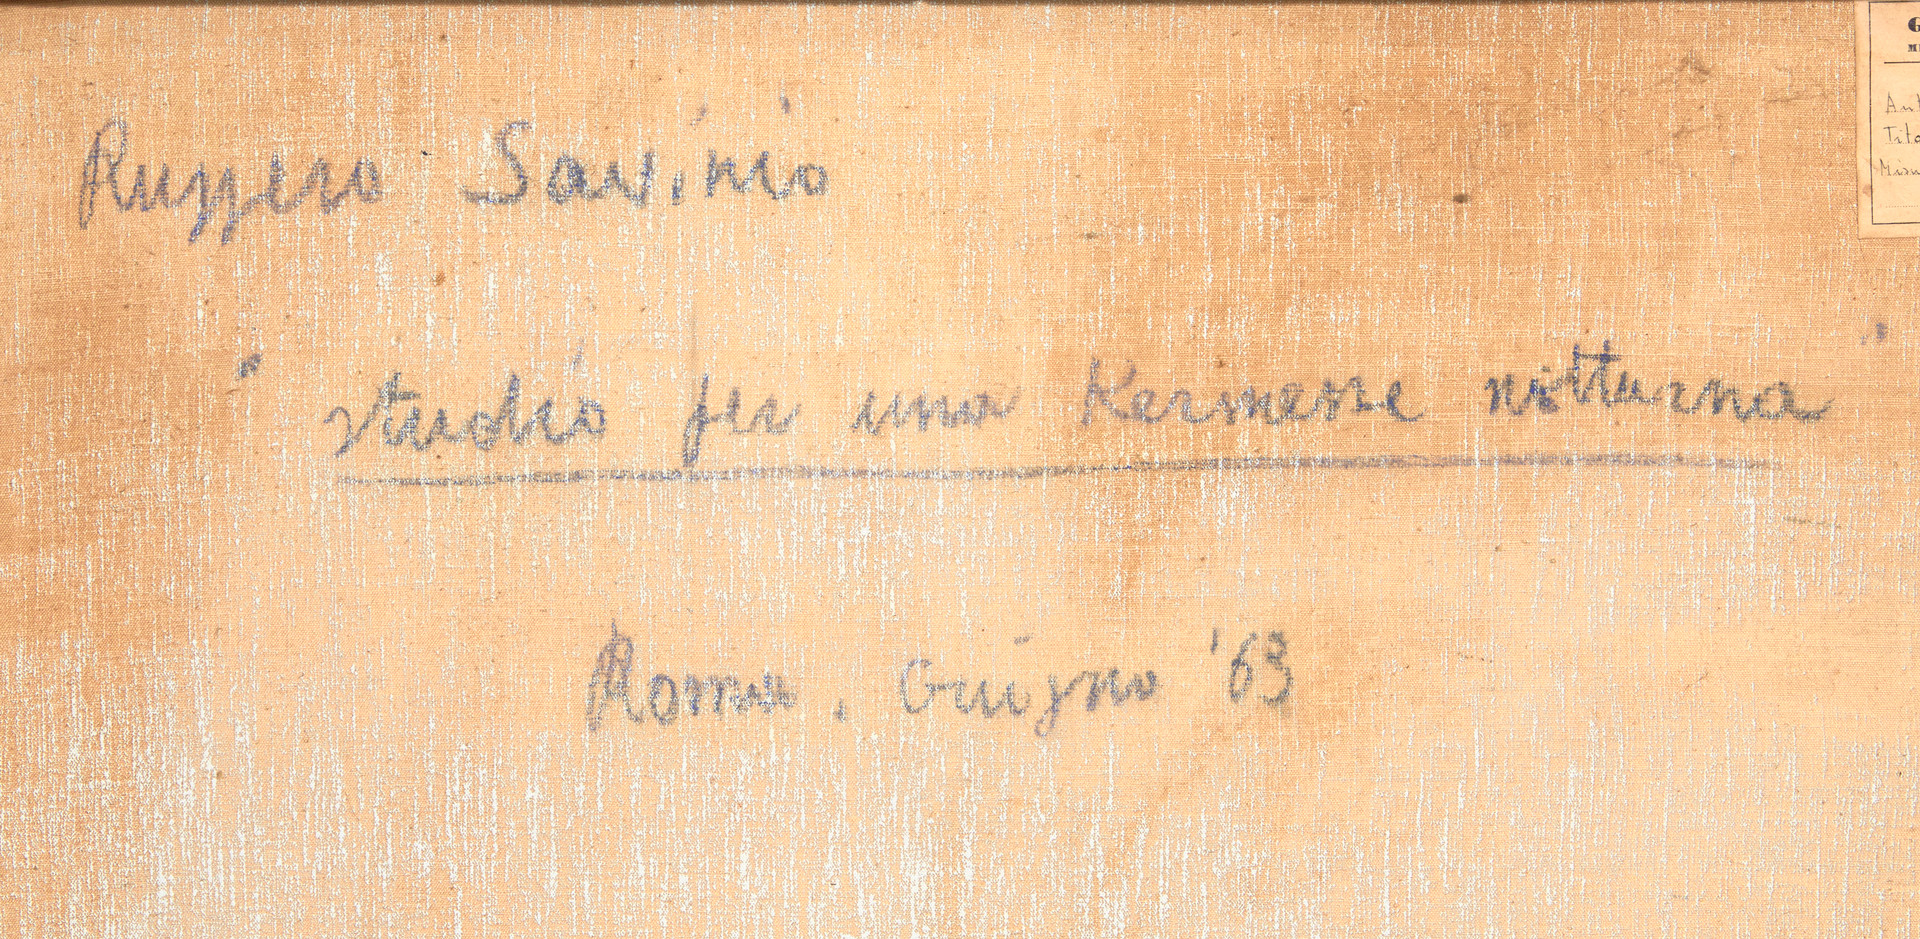 Ruggero Savinio
"studio per una Kermesse notturna"
Roma, Giugno '63